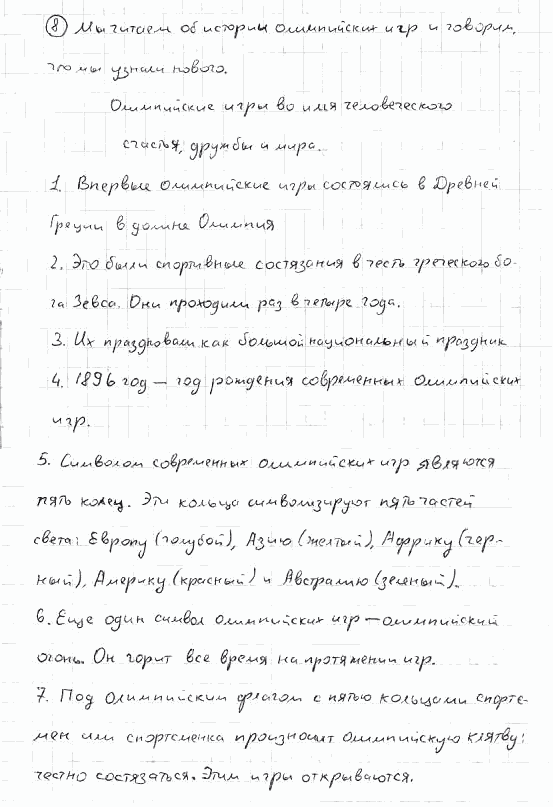 ⑧ Мы читаем об истории олимпийских игр и говорим,
что мы узнали нового.
Олимпийские игры во имя человеческого
счастья, дружбы и мира.
1. Впервые олимпийские игры состоялись в Древней
Греции в долине Олимпия
2. Это были спортивные состязания в честь греческого бо-
га Зевса. Они проходили раз в четыре года.
3. Их праздновали как большой национальный праздник
4. 1896 год — год рождения современных олимпийских
игр.
5. Символом современных олимпийских игр являются
пять колец. Эти кольца символизируют пять частей
света: Европу (голубой), Азию (желтый), Африку (чер-
ный), Америку (красный) и Австралию (зеленый).
6. Еще один символ олимпийских игр — олимпийский
огонь. Он горит все время на протяжении игр.
7. Под олимпийским флагом с пятью кольцами спортс-
мен или спортсменка произносит олимпийскую клятву:
честно состязаться. Этим игры открываются.